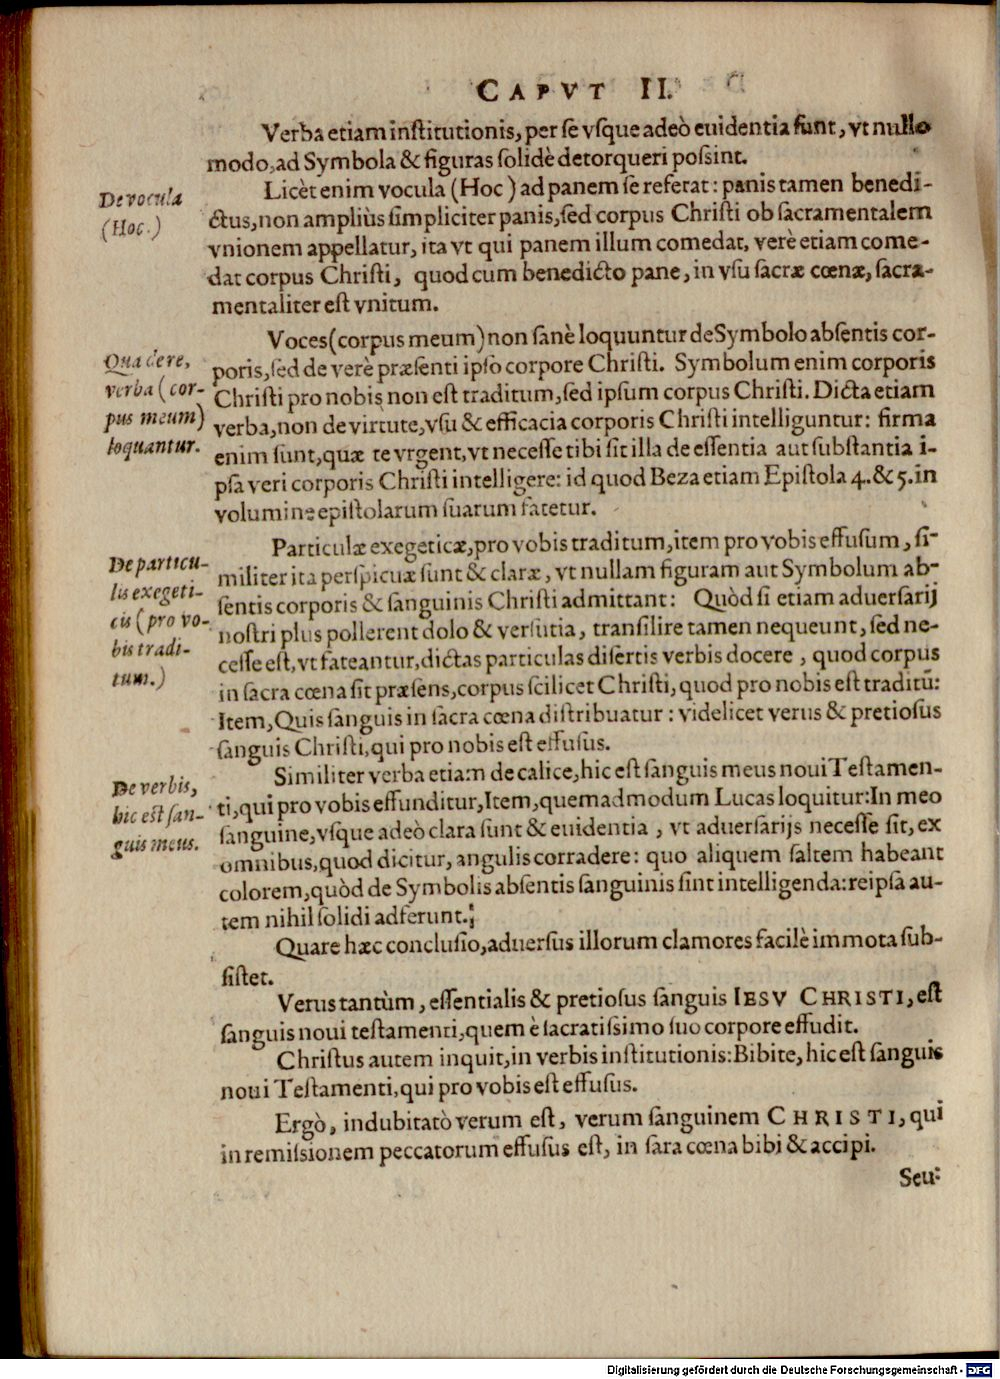 CAPVT II.
Verba etiam inſtitutionis, per ſe vſque adeò euidentia ſunt, vt nullo
modo, ad Symbola & figuras ſolidè detorqueri poſsint.
De vocula
(Hoc.)
Licèt enim vocula (Hoc) ad panem ſe referat: panis tamen benedi-
ctus, non ampliùs ſimpliciter panis, ſed corpus Chriſti ob ſacramentalem
vnionem appellatur, ita vt qui panem illum comedat, verè etiam come-
dat corpus Chriſti, quod cum benedicto pane, in vſu ſacræ cœnæ, ſacra-
mentaliter eſt vnitum.
Qua de re,
verba (cor-
pus meum)
loquantur.
Voces (corpus meum) non ſanè loquuntur de Symbolo abſentis cor-
poris, ſed de verè præſenti ipſo corpore Chriſti. Symbolum enim corporis
Chriſti pro nobis non eſt traditum, ſed ipſum corpus Chriſti. Dicta etiam
verba, non de virtute, vſu & efficacia corporis Chriſti intelliguntur: firma
enim ſunt, quæ te vrgent, vt neceſſe tibi ſit illa de eſſentia aut ſubſtantia i-
pſa veri corporis Chriſti intelligere: id quod Beza etiam Epiſtola 4. & 5. in
volumine epiſtolarum ſuarum fatetur.
De particu-
lis exegeti-
cis (pro vo-
bis tradi-
tum.)
Particulæ exegeticæ, pro vobis traditum, item pro vobis effuſum, ſi-
militer ita perſpicuæ ſunt & claræ, vt nullam figuram aut Symbolum ab-
ſentis corporis & ſanguinis Chriſti admittant: Quòd ſi etiam aduerſarij
noſtri plus pollerent dolo & verſutia, tranſilire tamen nequeunt, ſed ne-
ceſſe eſt, vt fateantur, dictas particulas diſertis verbis docere, quod corpus
in ſacra cœna ſit præſens, corpus ſcilicet Chriſti, quod pro nobis eſt traditū:
Item, Quis ſanguis in ſacra cœna diſtribuatur: videlicet verus & pretioſus
ſanguis Chriſti, qui pro nobis eſt effuſus.
De verbis,
hic est ſan-
guis meus.
Similiter verba etiam de calice, hic eſt ſanguis meus noui Teſtamen-
ti, qui pro vobis effunditur, Item, quemadmodum Lucas loquitur: In meo
ſanguine, vſque adeò clara ſunt & euidentia, vt aduerſarijs neceſſe ſit, ex
omnibus, quod dicitur, angulis corradere: quo aliquem ſaltem habeant
colorem, quòd de Symbolis abſentis ſanguinis ſint intelligenda: reipſa au-
tem nihil ſolidi adferunt.
Quare hæc concluſio, aduerſus illorum clamores facilè immota ſub-
ſiſtet.
Verus tantùm, eſſentialis & pretioſus ſanguis IESV CHRISTI, eſt
ſanguis noui teſtamenti, quem è ſacratiſsimo ſuo corpore effudit.
Chriſtus autem inquit, in verbis inſtitutionis: Bibite, hic eſt ſanguis
noui Teſtamenti, qui pro vobis eſt effuſus.
Ergò, indubitatò verum eſt, verum ſanguinem CHRISTI, qui
in remiſsionem peccatorum effuſus eſt, in ſara cœna bibi & accipi.
Seu:
Digitalisierung gefördert durch die Deutsche Forschungsgemeinschaft - DFG